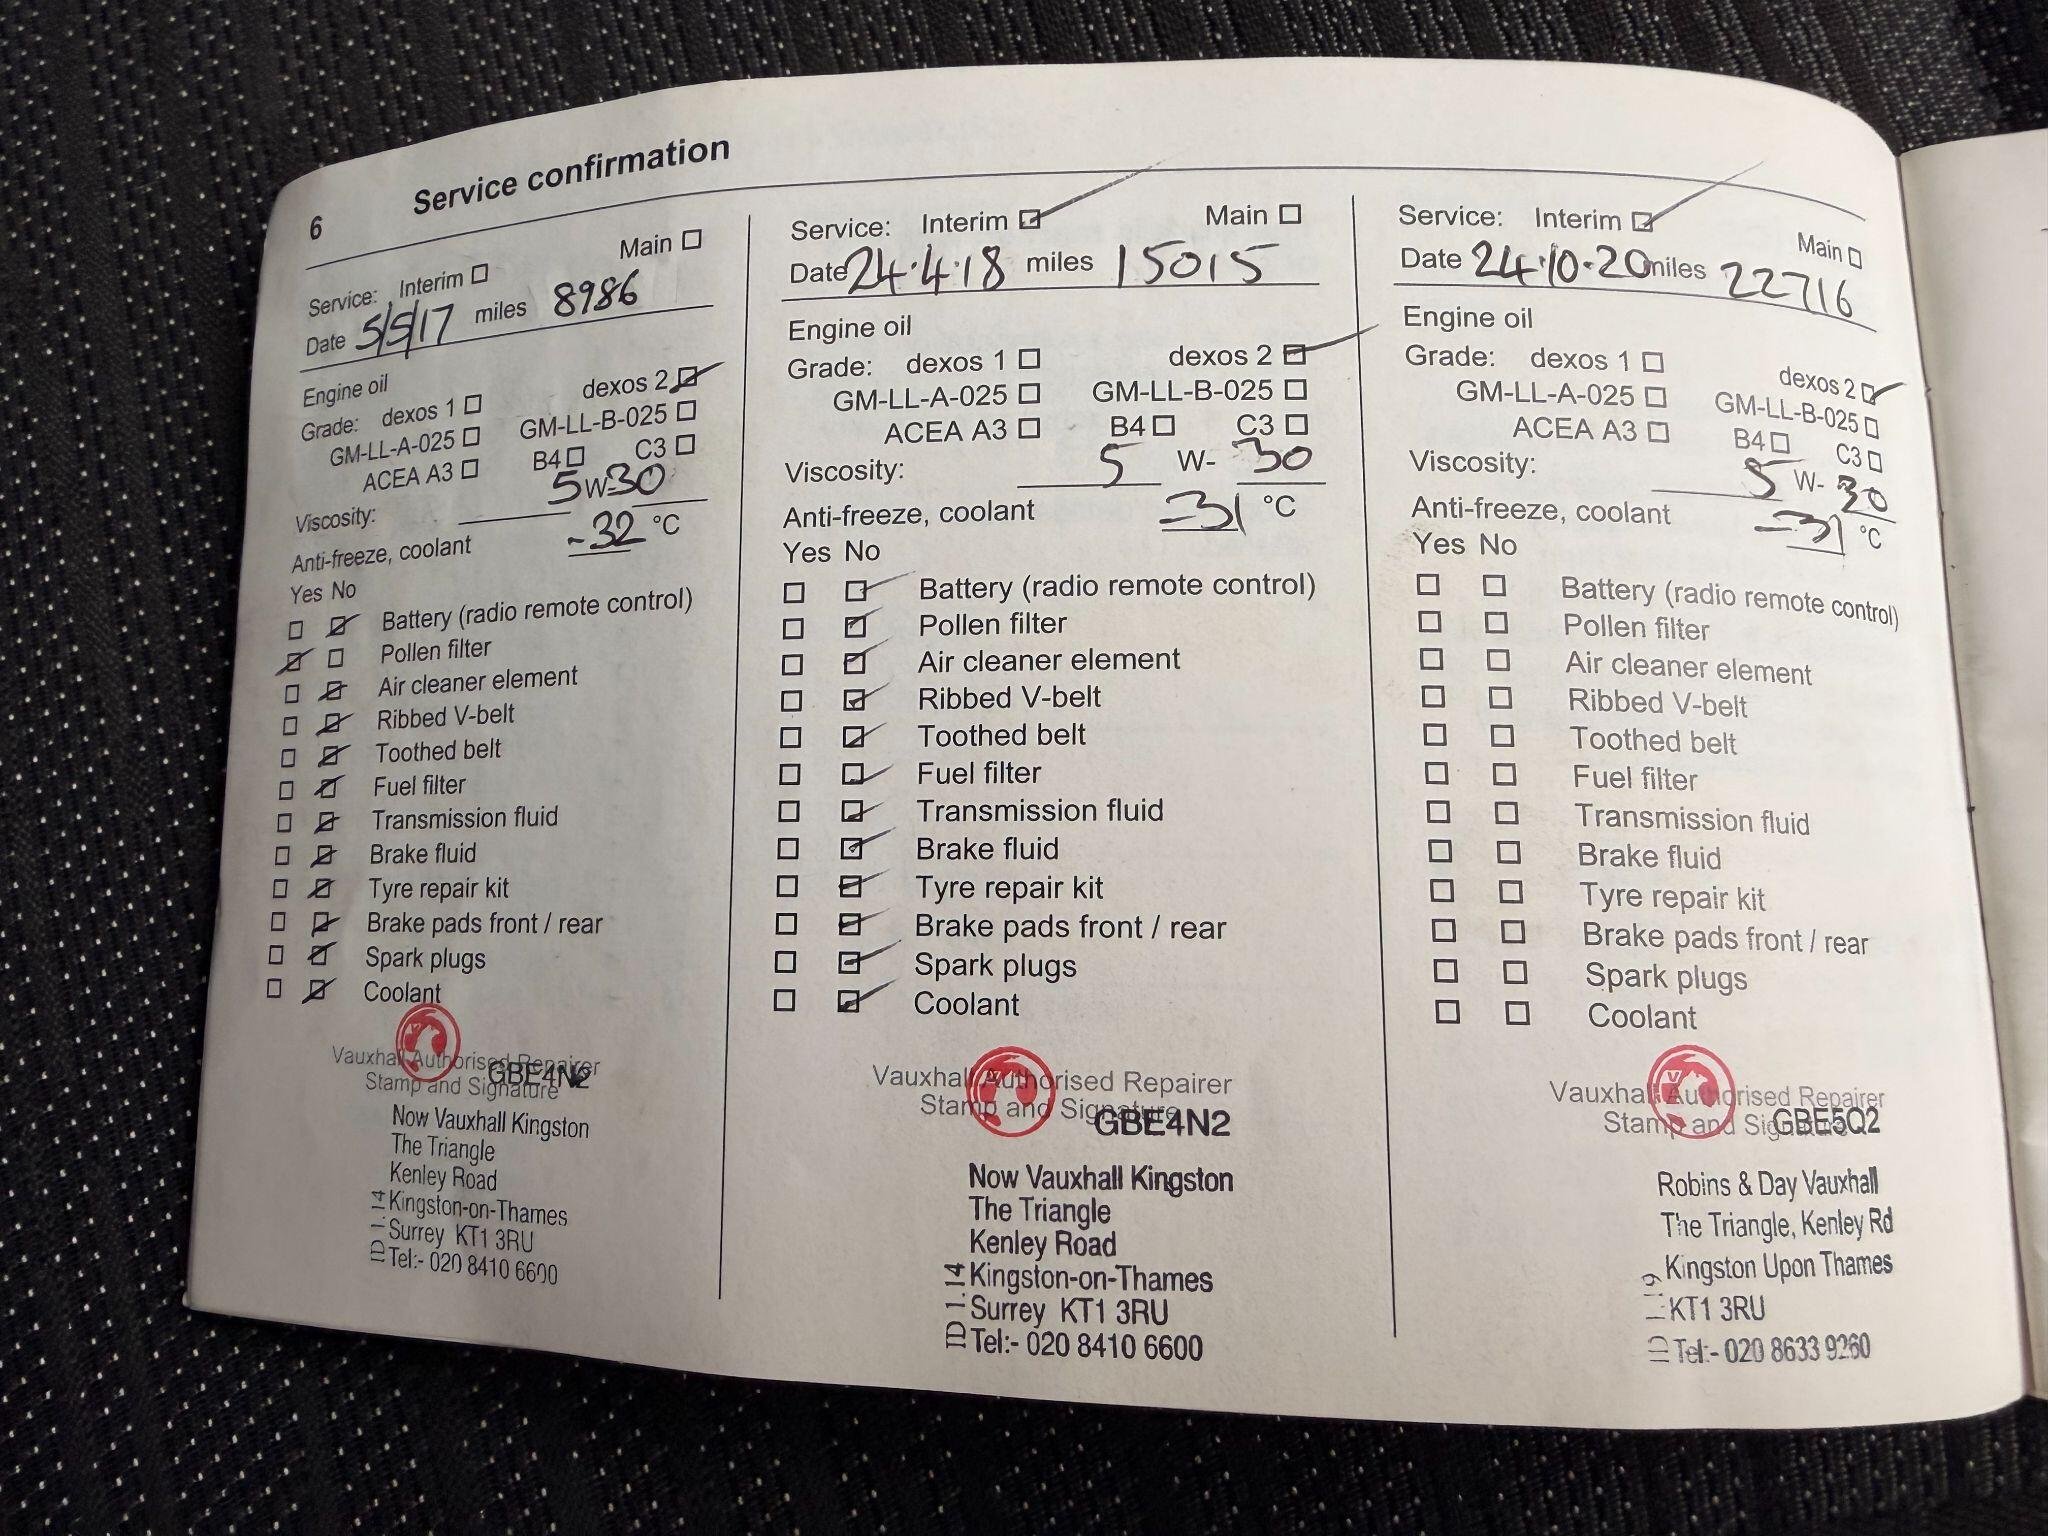 6 Service confirmation
Service: Interim Main
Date 5/5/17 miles 8986
Engine oil
Grade: dexos 1 dexos 2
GM-LL-A-025 GM-LL-B-025
ACEA A3 B4 C3
Viscosity: 5 W- 30
Anti-freeze, coolant -32 °C
Yes No
Battery (radio remote control)
Pollen filter
Air cleaner element
Ribbed V-belt
Toothed belt
Fuel filter
Transmission fluid
Brake fluid
Tyre repair kit
Brake pads front / rear
Spark plugs
Coolant
Vauxhall Authorised Repairer
Stamp and Signature
GBE4N2
Now Vauxhall Kingston
The Triangle
Kenley Road
Kingston-on-Thames
Surrey KT1 3RU
Tel:- 020 8410 6600
ID 1.14
Service: Interim Main
Date 24.4.18 miles 15015
Engine oil
Grade: dexos 1 dexos 2
GM-LL-A-025 GM-LL-B-025
ACEA A3 B4 C3
Viscosity: 5 W- 30
Anti-freeze, coolant -31 °C
Yes No
Battery (radio remote control)
Pollen filter
Air cleaner element
Ribbed V-belt
Toothed belt
Fuel filter
Transmission fluid
Brake fluid
Tyre repair kit
Brake pads front / rear
Spark plugs
Coolant
Vauxhall Authorised Repairer
Stamp and Signature
GBE4N2
Now Vauxhall Kingston
The Triangle
Kenley Road
Kingston-on-Thames
Surrey KT1 3RU
Tel:- 020 8410 6600
ID 1.14
Service: Interim Main
Date 24.10.20 miles 22716
Engine oil
Grade: dexos 1 dexos 2
GM-LL-A-025 GM-LL-B-025
ACEA A3 B4 C3
Viscosity: 5 W- 30
Anti-freeze, coolant -31 °C
Yes No
Battery (radio remote control)
Pollen filter
Air cleaner element
Ribbed V-belt
Toothed belt
Fuel filter
Transmission fluid
Brake fluid
Tyre repair kit
Brake pads front / rear
Spark plugs
Coolant
Vauxhall Authorised Repairer
Stamp and Signature
GBE5Q2
Robins & Day Vauxhall
The Triangle, Kenley Rd
Kingston Upon Thames
KT1 3RU
Tel:- 020 8633 9260